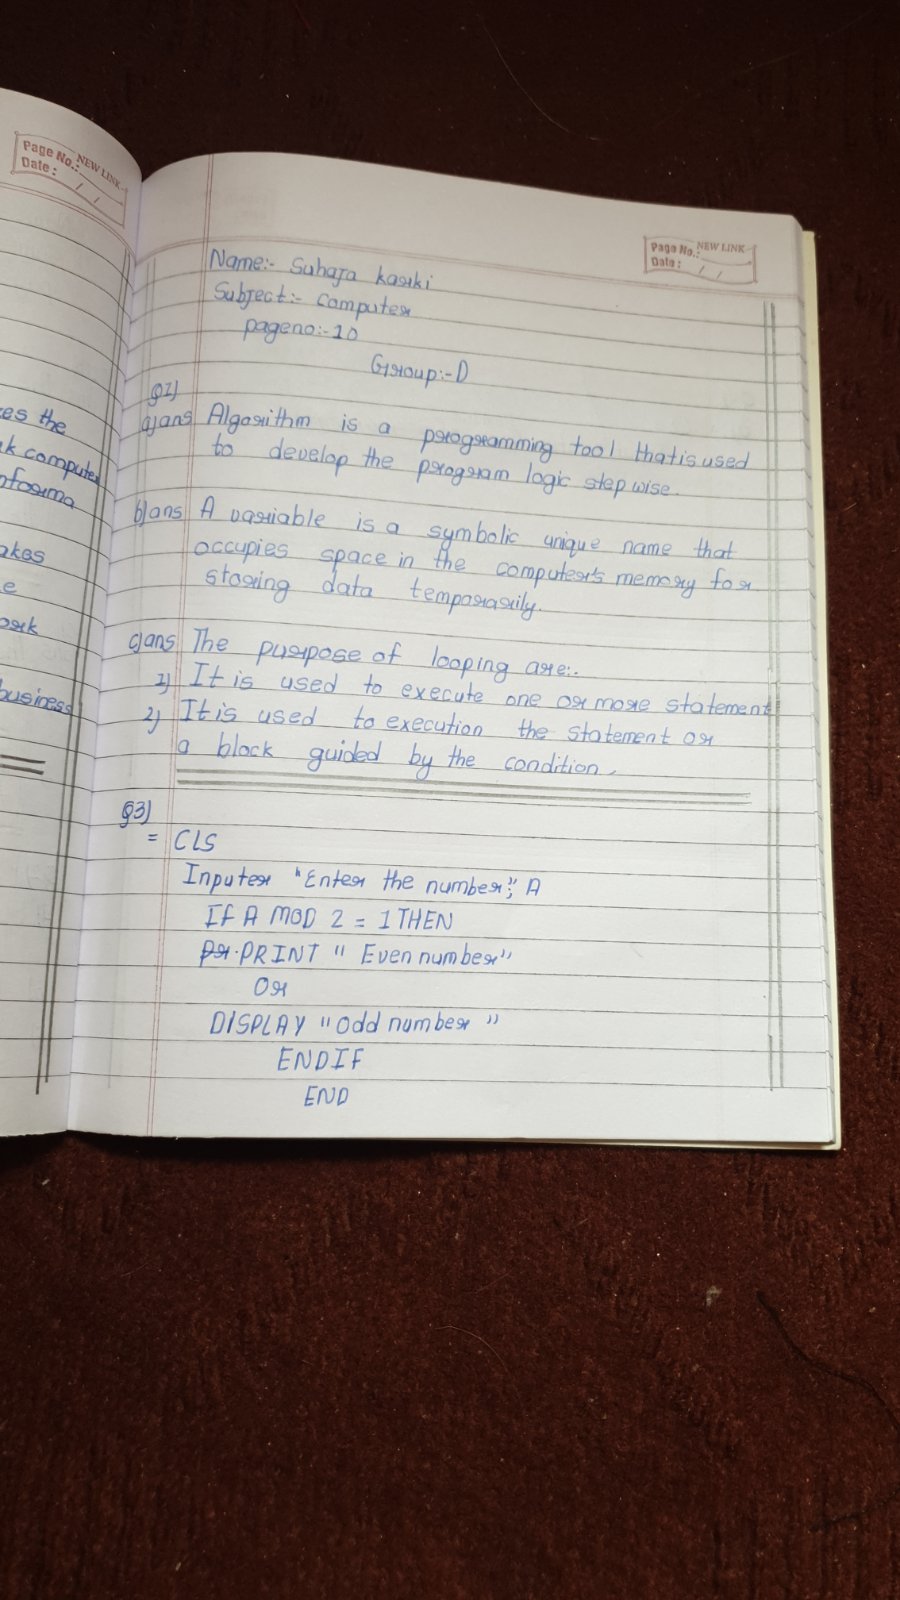 Page No.: NEW LINK
Date: / /
es the
k computer
nforma
akes
e
ork
business
Page No.: NEW LINK
Date: / /
Name:- Suhaja karki
Subject:- computer
pageno:-10
Group:-D
a)ans Algorithm is a programming tool that is used
to develop the program logic step wise.
b)ans A variable is a symbolic unique name that
occupies space in the computer's memory for
storing data temporarily.
c)ans The purpose of looping are:.
1) It is used to execute one or more statement
2) It is used to execution the statement or
a block guided by the condition.
Q3)
= CLS
Inputer "Enter the number"; A
If A MOD 2 = 1 THEN
PRINT "Even number"
Or
DISPLAY "Odd number"
ENDIF
END